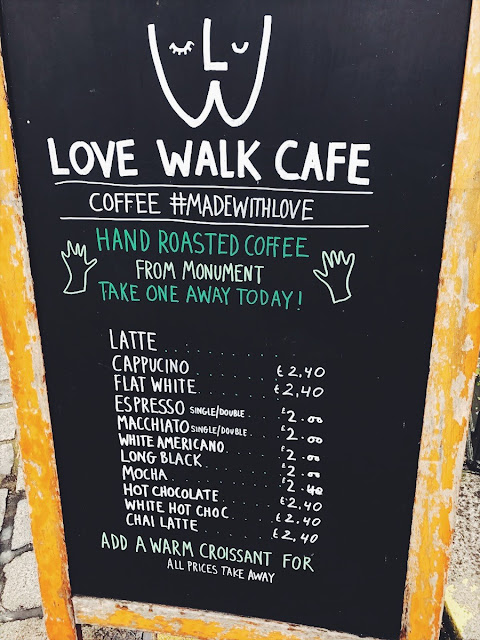 L
W
LOVE WALK CAFE
COFFEE #MADEWITHLOVE
HAND ROASTED COFFEE
FROM MONUMENT
TAKE ONE AWAY TODAY!
LATTE
CAPPUCINO £2.40
FLAT WHITE £2.40
ESPRESSO SINGLE/DOUBLE £2.00
MACCHIATO SINGLE/DOUBLE £2.00
WHITE AMERICANO £2.00
LONG BLACK £2.00
MOCHA £2.40
HOT CHOCOLATE £2.40
WHITE HOT CHOC £2.40
CHAI LATTE £2.40
ADD A WARM CROISSANT FOR
ALL PRICES TAKE AWAY